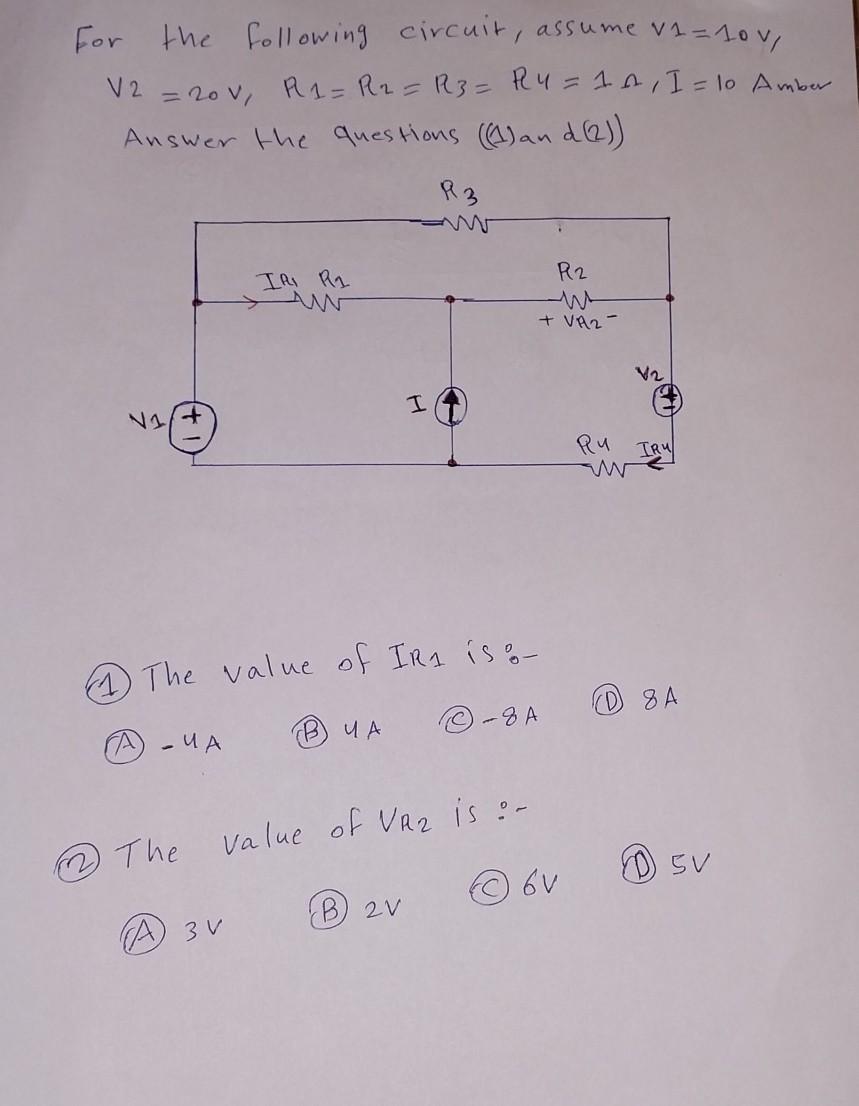 For the following circuit, assume V1=10V,
V2 =20V, R1=R2=R3= R4=1Ω, I=10 Amber
Answer the questions ((1)and(2))
R3
IR1 R1
R2
+ VR2 -
V2
+
-
I
V1
+
-
R4 IR4
(1) The value of IR1 is:-
(A) -4A (B) 4A (C) -8A (D) 8A
(2) The value of VR2 is :-
(A) 3V (B) 2V (C) 6V (D) 5V